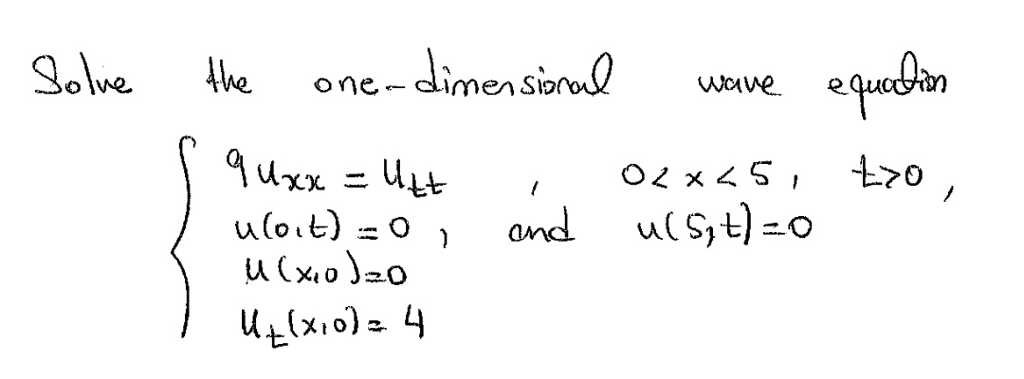 Solve the one-dimensional wave equation
9 uxx = utt , 0 < x < 5, t>0,
u(0,t) = 0, and u(5,t) = 0
u(x,0) = 0
ut(x,0) = 4